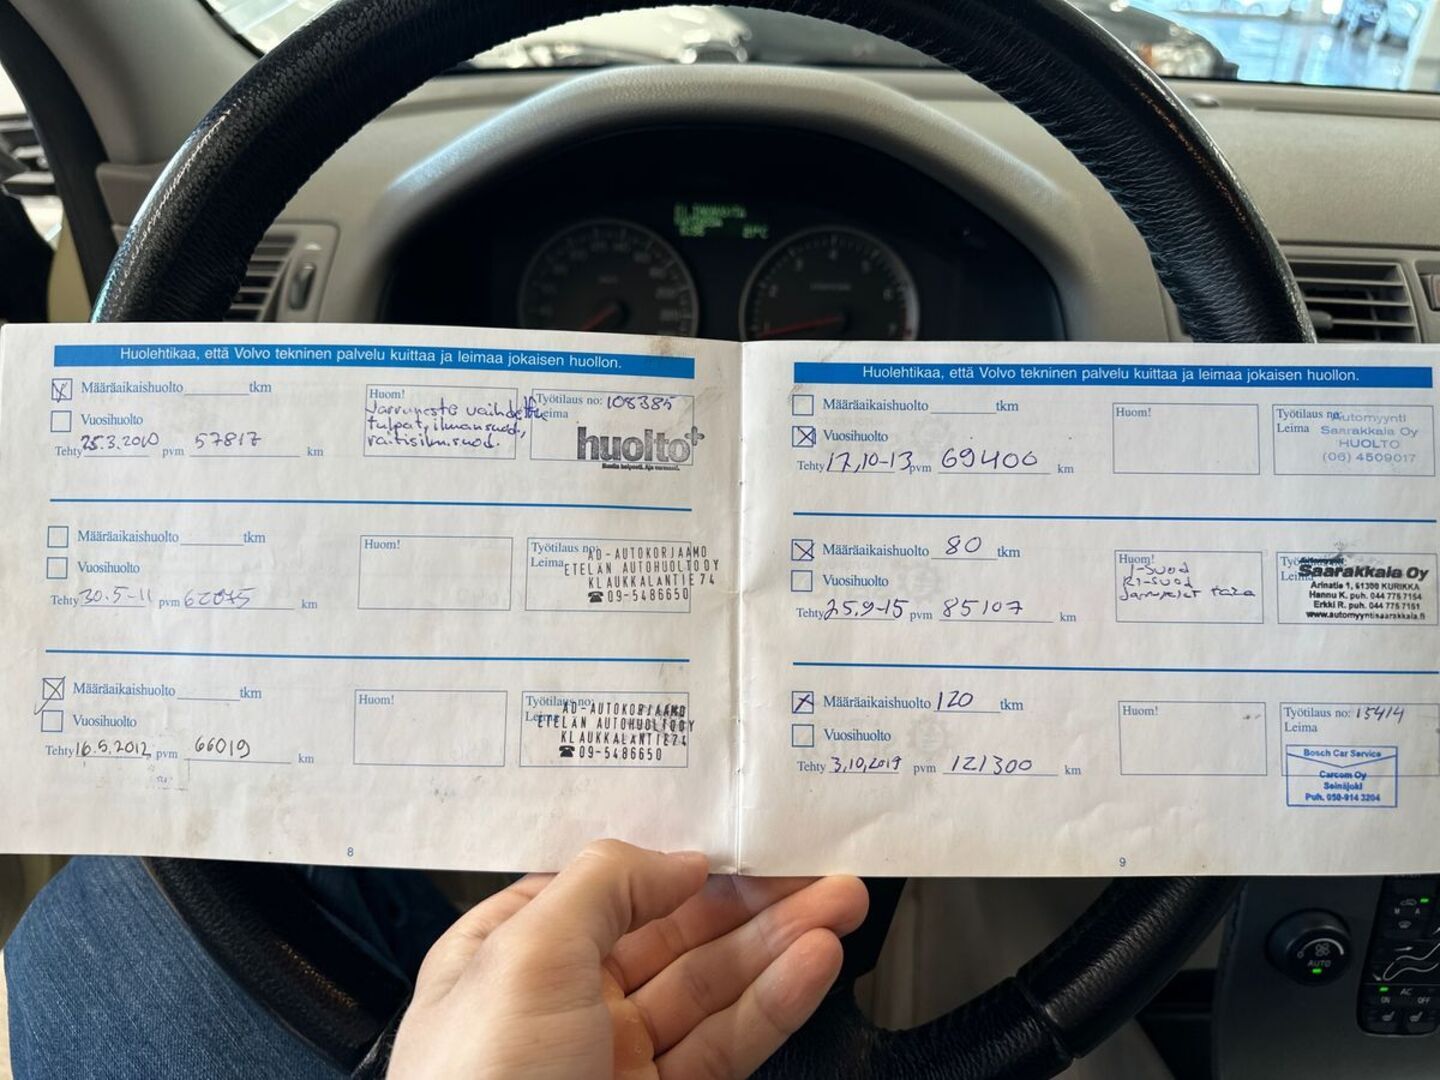 Huolehtikaa, että Volvo tekninen palvelu kuittaa ja leimaa jokaisen huollon.
Määräaikaishuolto tkm
Vuosihuolto
Tehty 25.3.2010 pvm 57817 km
Huom!
Jarruneste vaihdettu,
tulpat, ilmansuod.,
raitisilm.suod.
Työtilaus no: 108385
Leima
huolto+
Määräaikaishuolto tkm
Vuosihuolto
Tehty 30.5-11 pvm km
Huom!
Työtilaus no:
Leima
AD-AUTOKORJAAMO
ETELÄN AUTOHUOLTO OY
KLAUKKALANTIE 74
☎ 09-5486650
Määräaikaishuolto tkm
Vuosihuolto
Tehty 16.5.2012 pvm 66019 km
Huom!
Työtilaus no:
Leima
AD-AUTOKORJAAMO
ETELÄN AUTOHUOLTO OY
KLAUKKALANTIE 74
☎ 09-5486650
8
Huolehtikaa, että Volvo tekninen palvelu kuittaa ja leimaa jokaisen huollon.
Määräaikaishuolto tkm
Vuosihuolto
Tehty 17,10-13 pvm 69400 km
Huom!
Työtilaus no:
Leima
Automyynti
Saarakkala Oy
HUOLTO
(06) 4509017
Määräaikaishuolto 80 tkm
Vuosihuolto
Tehty 25.9-15 pvm 85107 km
Huom!
Saarakkala Oy
Arinatie 1, 61300 KURIKKA
Hannu K. puh. 044 775 7154
Erkki R. puh. 044 775 7151
www.automyyntisaarakkala.fi
Määräaikaishuolto 120 tkm
Vuosihuolto
Tehty 3,10,2019 pvm 121300 km
Huom!
Työtilaus no: 15414
Leima
Bosch Car Service
Carcom Oy
Seinäjoki
Puh. 050-914 3204
9
AUTO
AC
ON OFF